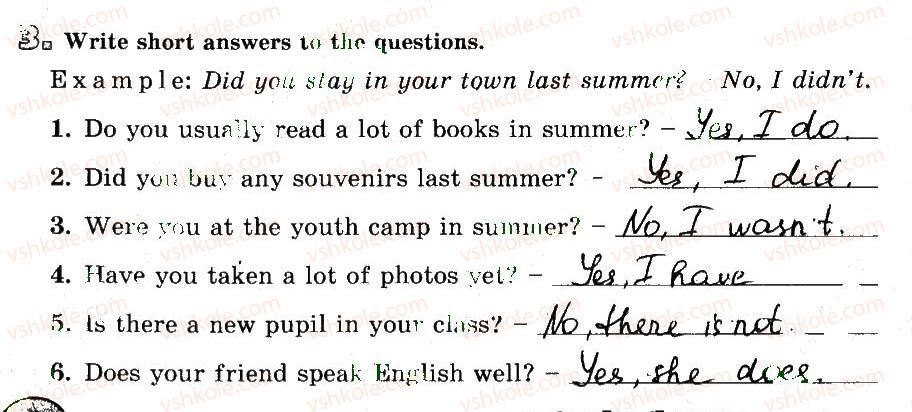 3. Write short answers to the questions.
Example: Did you stay in your town last summer? No, I didn't.
1. Do you usually read a lot of books in summer? – Yes, I do.
2. Did you buy any souvenirs last summer? – Yes, I did.
3. Were you at the youth camp in summer? – No, I wasn't.
4. Have you taken a lot of photos yet? – Yes, I have
5. Is there a new pupil in your class? – No, there is not.
6. Does your friend speak English well? – Yes, she does.